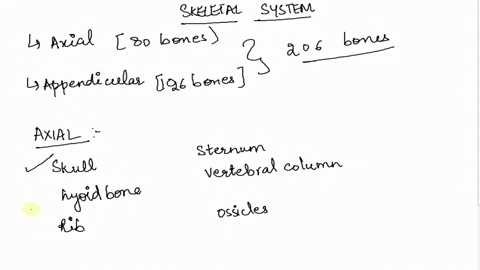 SKELETAL SYSTEM
↳ Axial [80 bones)
↳ Appendicular [126 bones] } 206 bones
AXIAL :-
✓ Skull
Sternum
vertebral column
hyoid bone
Rib
ossicles